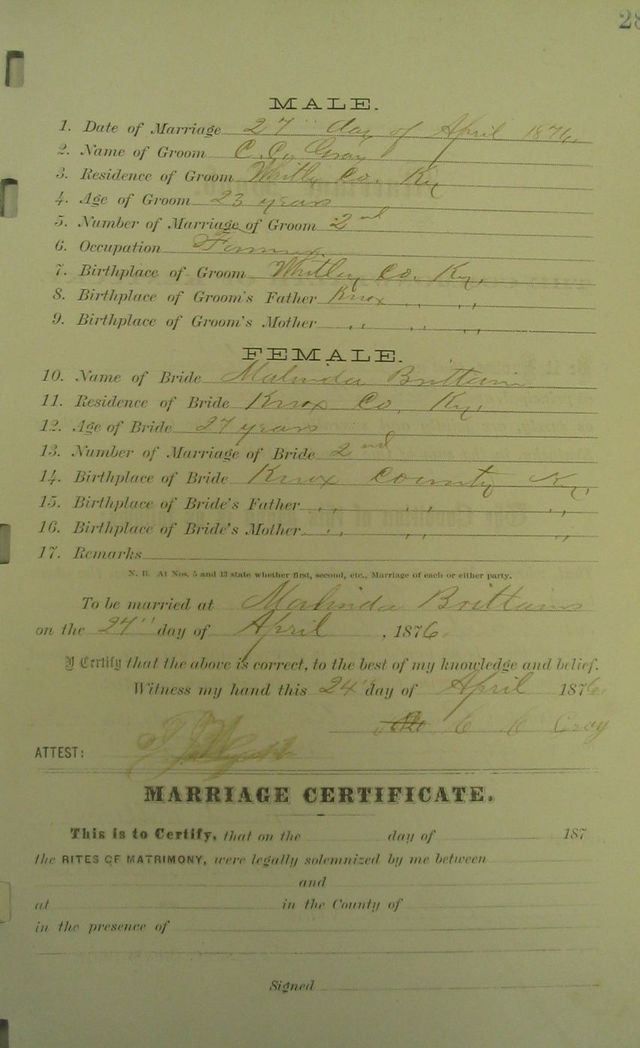 28
MALE.
1. Date of Marriage 27" day of April 1876
2. Name of Groom C. C. Gray
3. Residence of Groom Whitly Co. Ky
4. Age of Groom 23 years
5. Number of Marriage of Groom 2nd
6. Occupation Farmer
7. Birthplace of Groom Whitley Co. Ky,
8. Birthplace of Groom's Father Knox " "
9. Birthplace of Groom's Mother " " "
FEMALE.
10. Name of Bride Malinda Brittain
11. Residence of Bride Knox Co. Ky.
12. Age of Bride 27 years
13. Number of Marriage of Bride 2nd
14. Birthplace of Bride Knox County Ky,
15. Birthplace of Bride's Father " " "
16. Birthplace of Bride's Mother " " "
17. Remarks
N. B. At Nos. 5 and 13 state whether first, second, etc., Marriage of each or either party.
To be married at Malinda Brittains
on the 24" day of April , 1876.
I Certify that the above is correct, to the best of my knowledge and belief.
Witness my hand this 24" day of April 1876
C C Gray
ATTEST:
MARRIAGE CERTIFICATE.
This is to Certify, that on the day of 187
the RITES OF MATRIMONY, were legally solemnized by me between
and
at in the County of
in the presence of
Signed